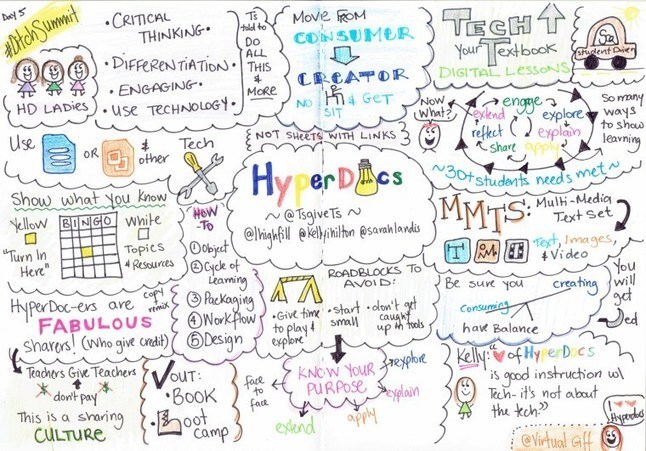 Day 5
#DitchSummit
HD LADIES
• CRITICAL
THINKING •
• DIFFERENTIATION •
• ENGAGING •
• USE TECHNOLOGY •
Ts
told to
DO
ALL
THIS
&
MORE
MOVE FROM
CONSUMER
CREATOR
NO
SIT
& GET
TECH
Your Textbook
DIGITAL LESSONS
Student Driven
Now
What?
engage
explore
explain
apply
share
reflect
extend
So many
ways
to show
learning
~30+ students needs met~
Use
OR
&
other
Tech
NOT SHEETS WITH LINKS
HyperDocs
~ @TsgiveTs ~
@lhighfill @kellyihilton @sarahlandis
Show what you know
Yellow
"Turn In
Here"
BINGO
White
Topics
& Resources
HOW
-TO
① Object
② Cycle of
Learning
③ Packaging
④ Workflow
⑤ Design
MMTS: Multi-Media
Text Set
T
Text, Images,
& Video
ROADBLOCKS TO
AVOID:
• Give time
to play &
explore
• start
small
• don't get
caught
up in tools
Be sure you
creating
Consuming
have Balance
You
will
get
HyperDoc-ers are
copy
remix
FABULOUS
sharers! (Who give credit)
Teachers Give Teachers
don't pay
This is a sharing
CULTURE
OUT:
• BOOK
• Boot
camp
KNOW YOUR
PURPOSE
face
to
face
explore
explain
apply
extend
Kelly: "♥ of HyperDocs
is good instruction w/
Tech-it's not about
the tech."
I ♥
Hyperdocs
@Virtual Giff